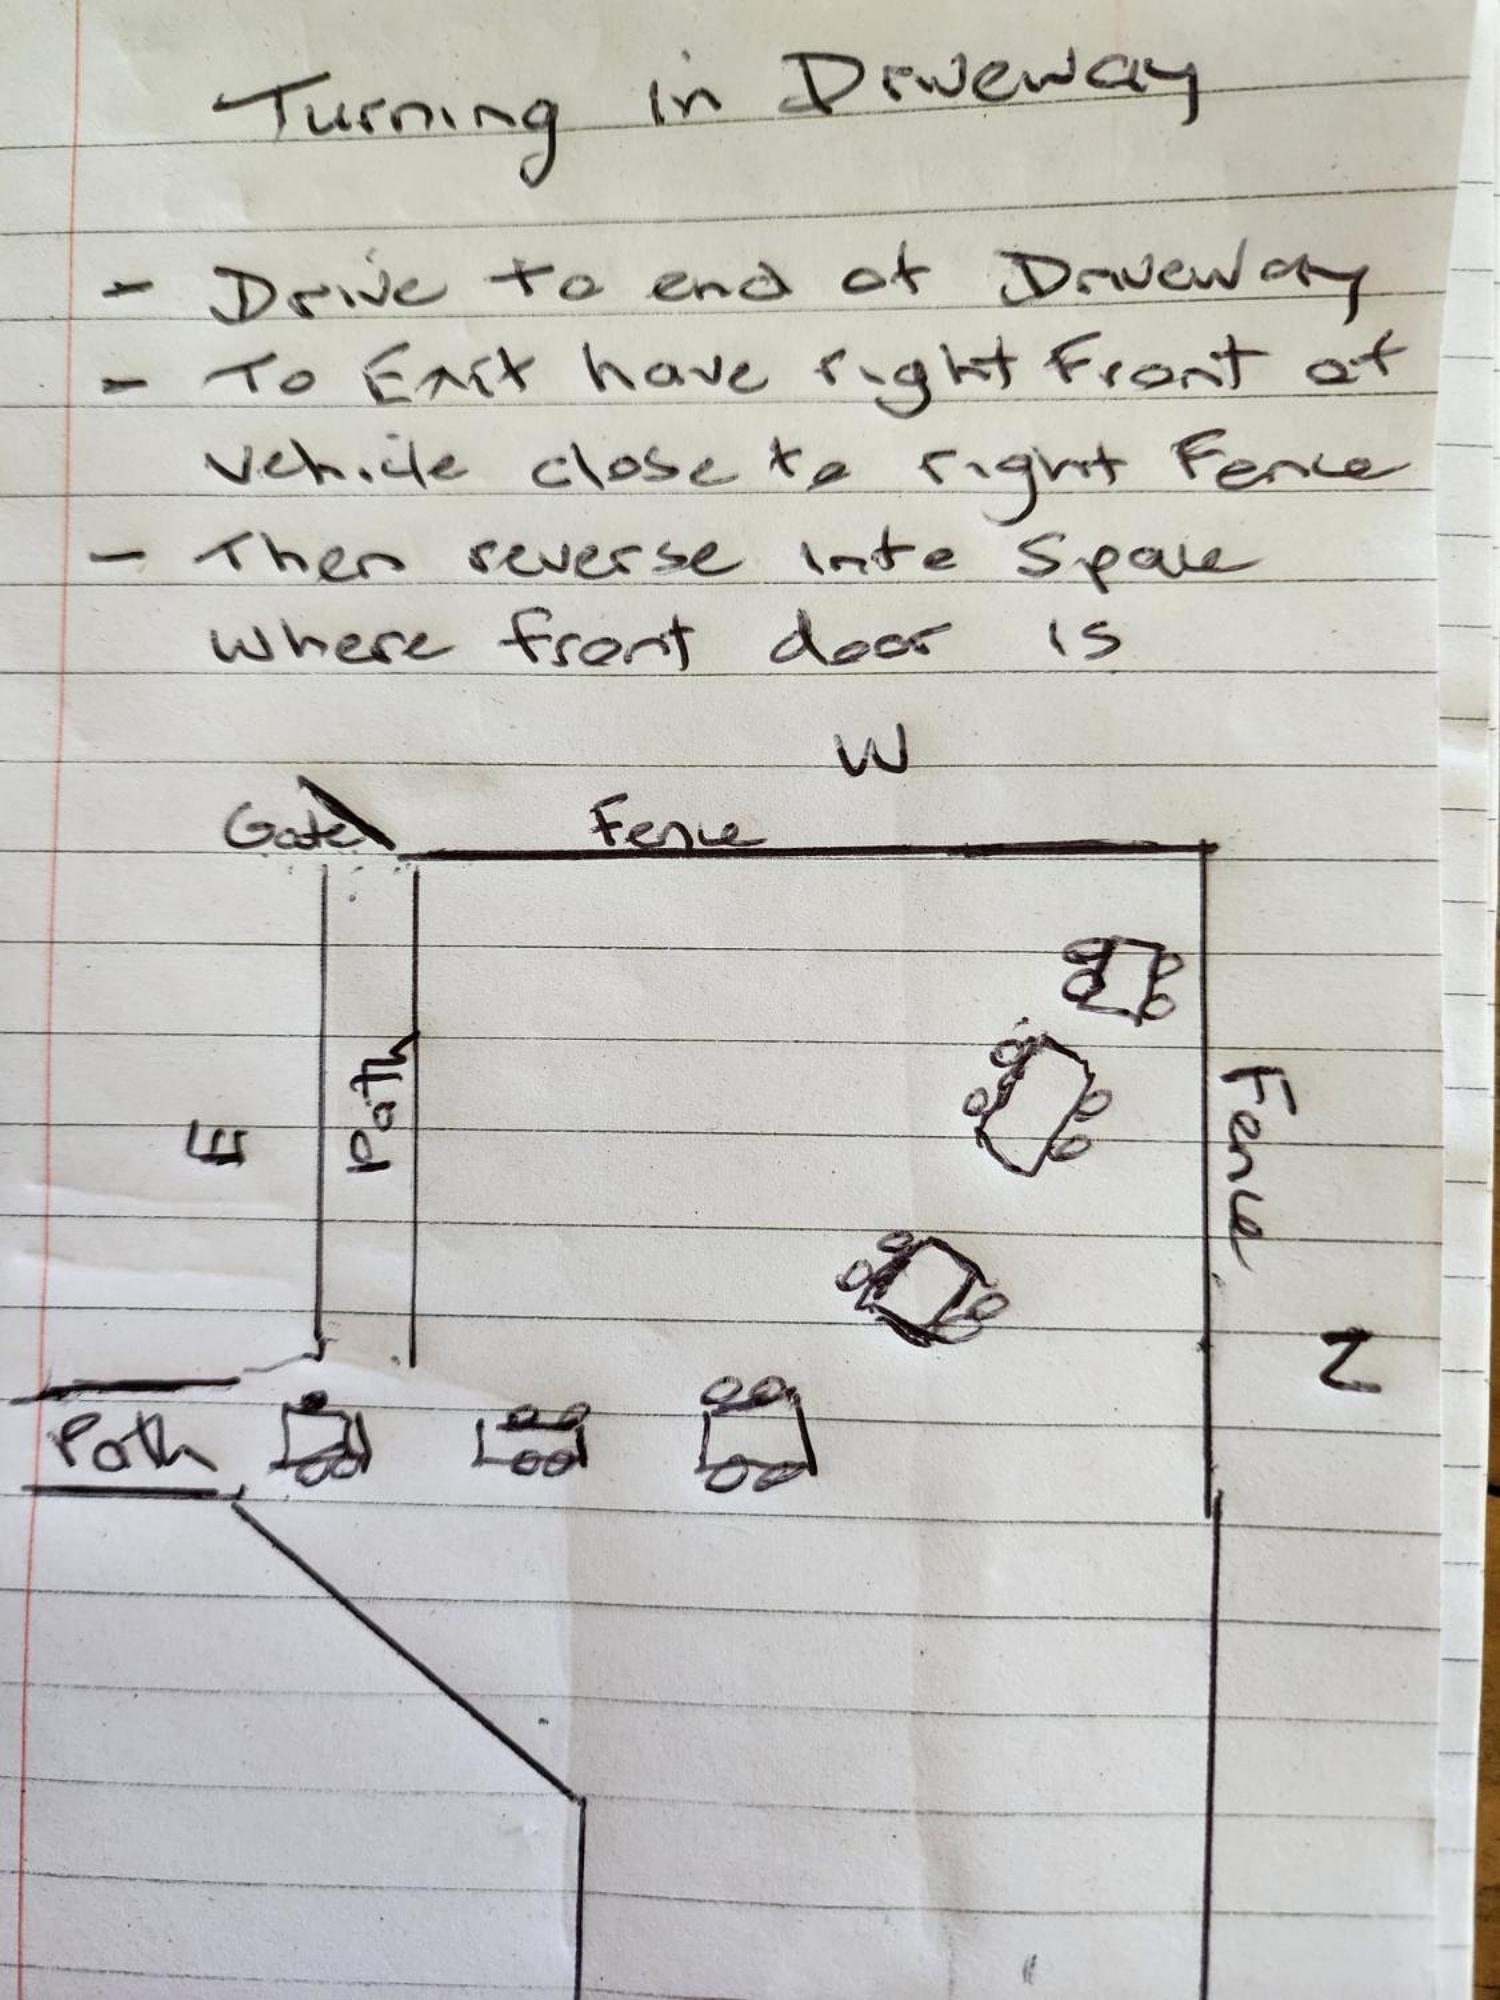 Turning in Driveway
- Drive to end of Driveway
- To Exit have right Front of
vehicle close to right Fence
- Then reverse into Space
where front door is
W
Gate
Fence
Path
E
Fence
N
Path